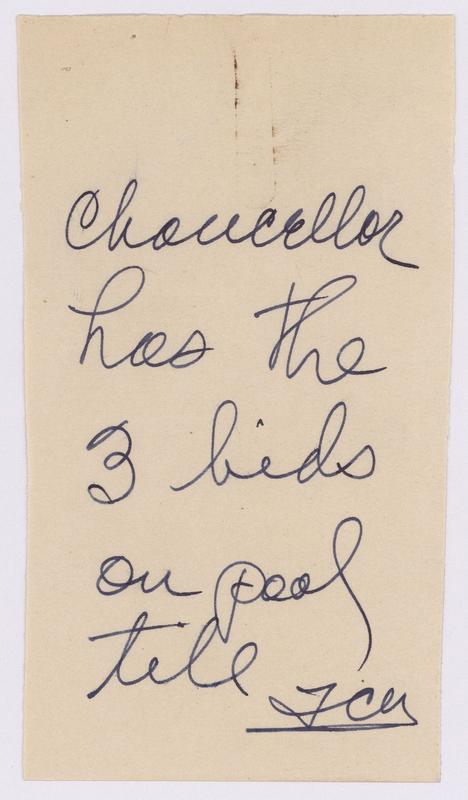 Chancellor
has the
3 bids
on pool
tile